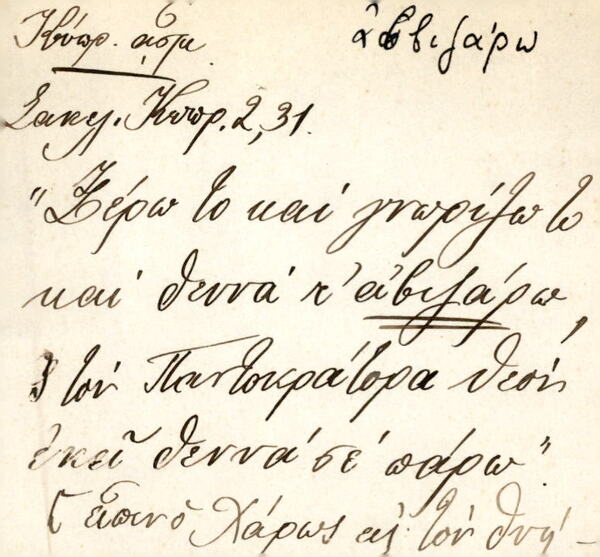 Κύπρ. ᾆσμ. ἀββιζάρω
Σακελ. Κυπρ. 2, 31.
"Ξέρω το καὶ γνωρίζω το
καὶ θεννά τ' ἀβιζάρω,
τὸν Παντοκράτορα θεὸν
ἐκεῖ θεννά σέ πάρω".
Χάρως εἰς τὸν θνη-